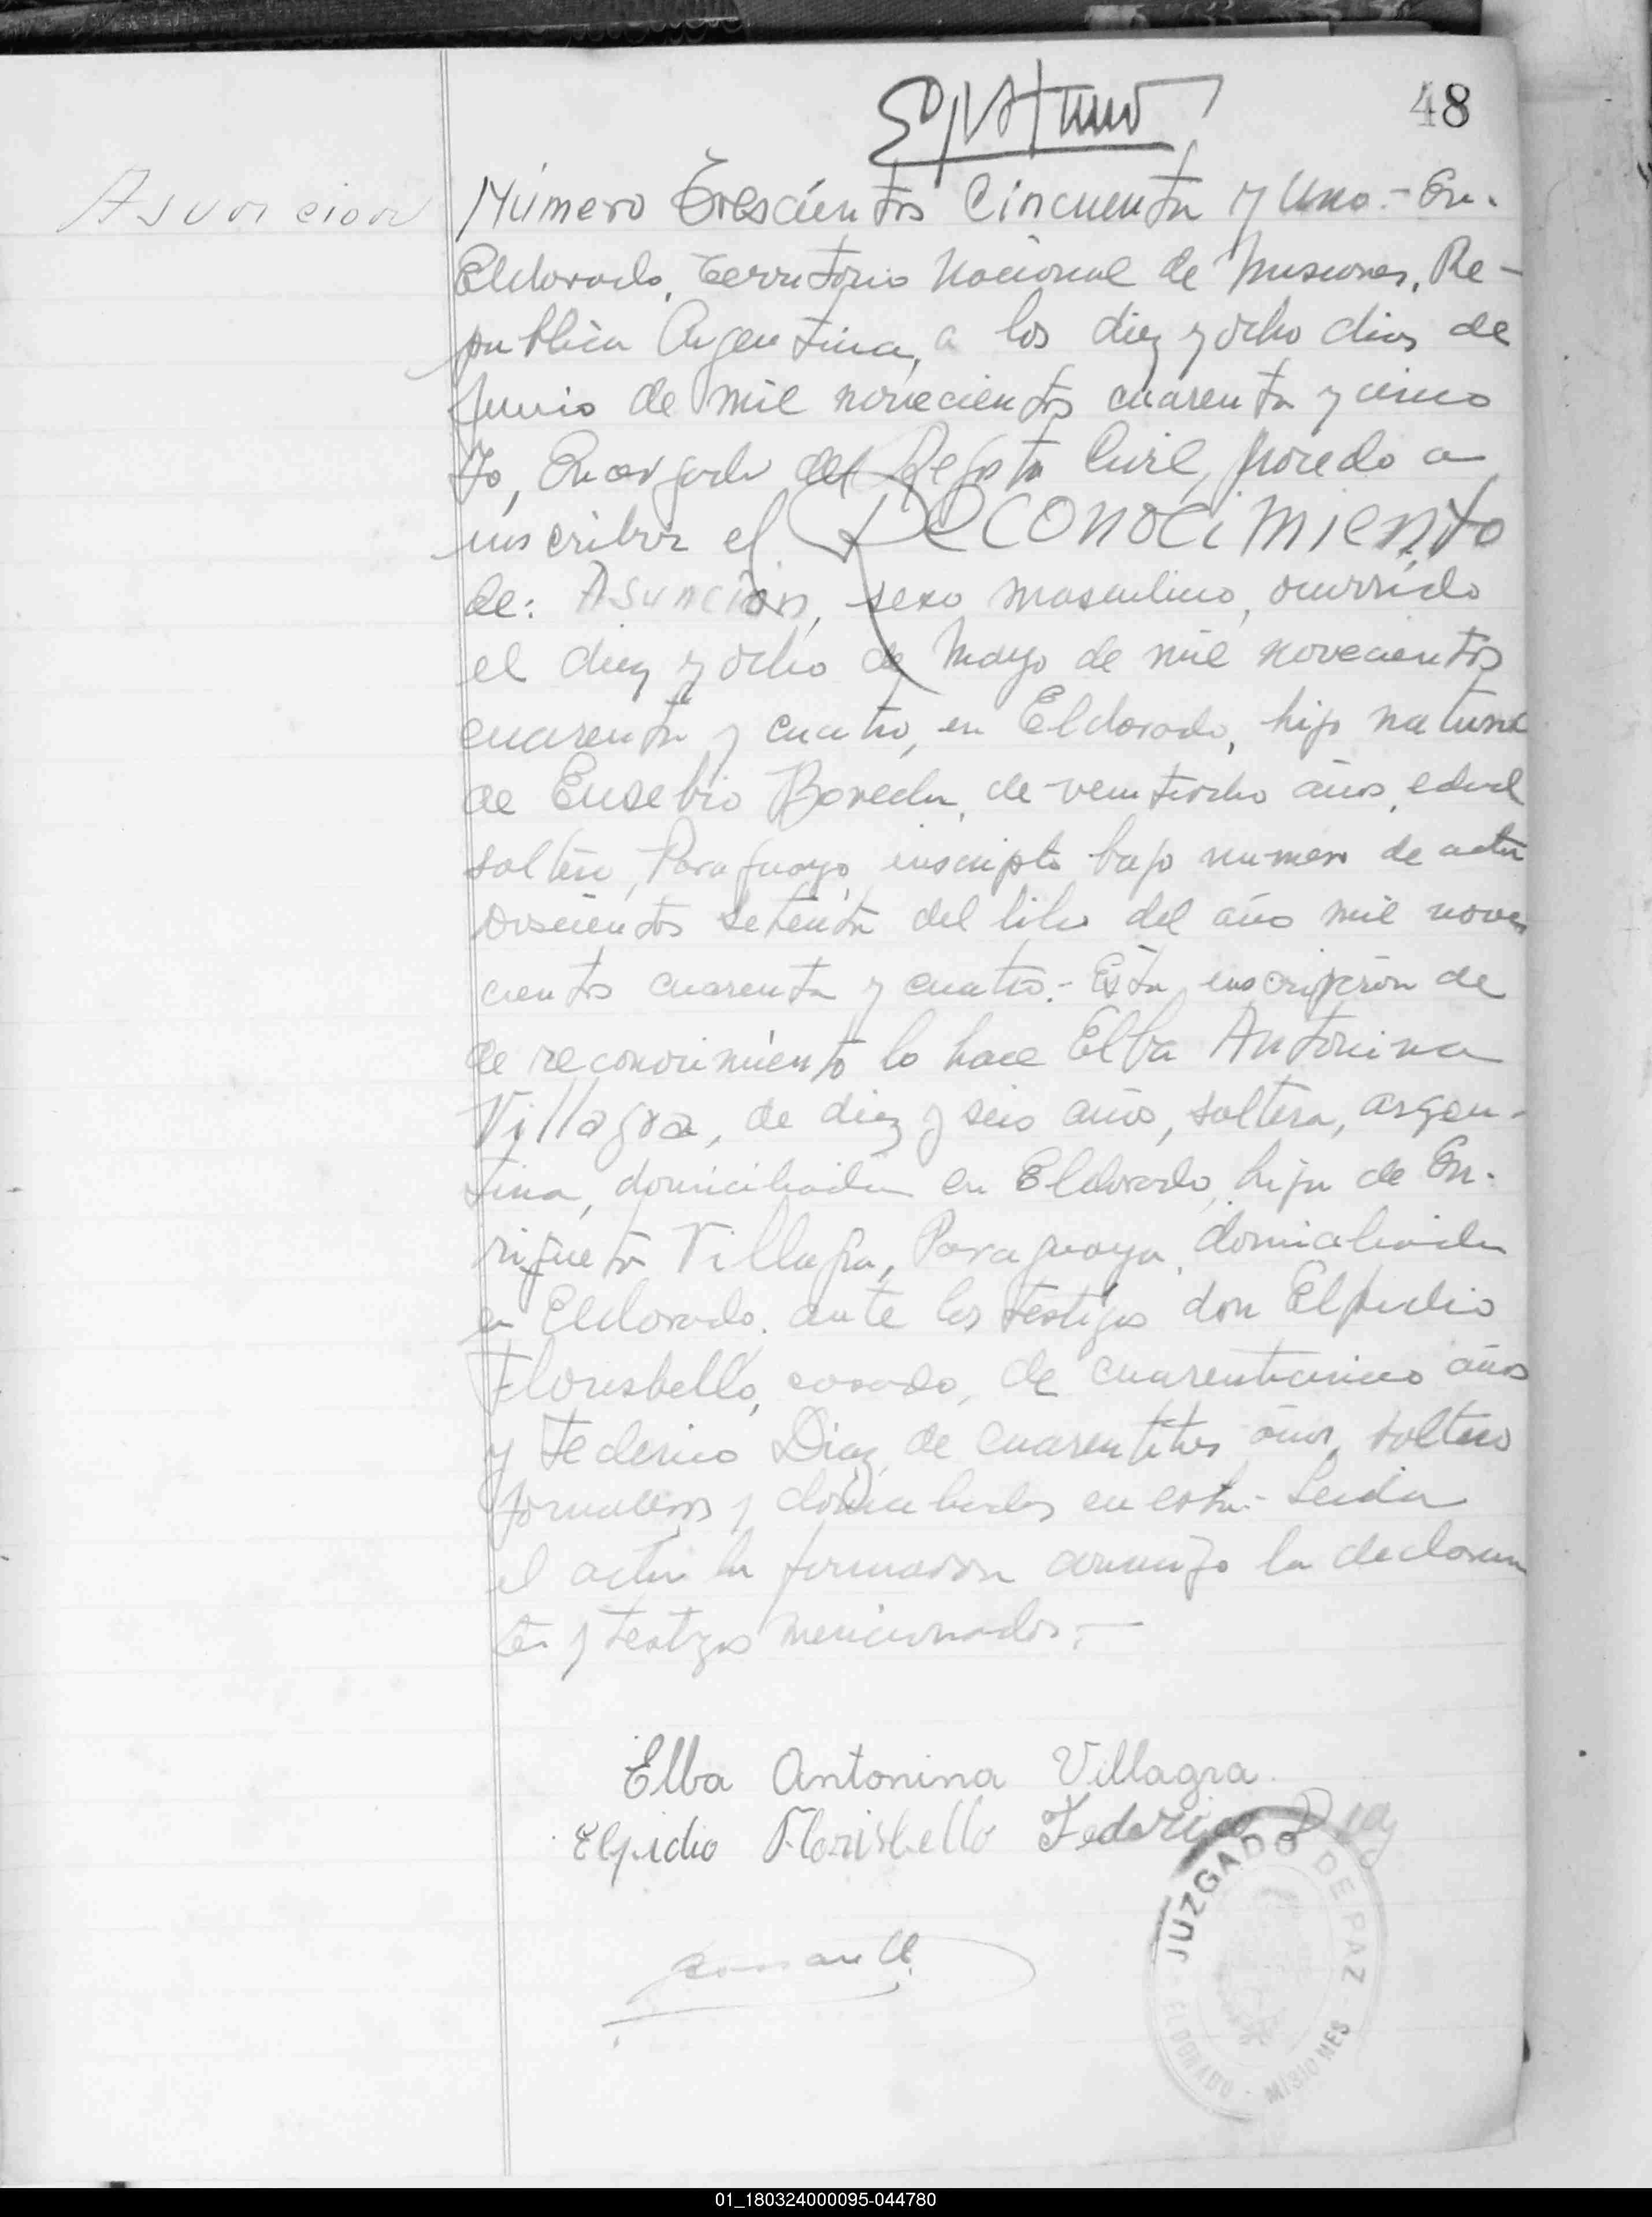 48
Asuncion
Número Trescientos Cincuenta y Uno.- En.
Eldorado, Territorio Nacional de Misiones, Re-
publica Argentina, a los diez y ocho dias de
Junio de mil novecientos cuarenta y cinco
Yo, Encargado del Registro Civil, procedo a
inscribir el Reconocimiento
de: Asuncion, sexo masculino, ocurrido
el diez y ocho de Mayo de mil novecientos
cuarenta y cuatro, en Eldorado, hijo natural
de Eusebio Boveda, de veintiocho años, edad
soltero, Paraguayo, inscripto bajo numero de acta
Doscientos setenta del libro del año mil nove
cientos cuarenta y cuatro.- Esta inscripción de
de reconocimiento lo hace Elba Antonina
Villagra, de diez y seis años, soltera, argen-
tina, domiciliada en Eldorado, hija de En-
riqueta Villagra, Paraguaya, domiciliada
en Eldorado. ante los testigos don Elpidio
Florisbello, casado, de cuarenticinco años
y Federico Diaz, de cuarentitres años, soltero
jornaleros y domiciliados en esta.- Leida
el acta la firmaron conmigo la declaran
te y testigos mencionados.-
Elba Antonina Villagra.
Elpidio Florisbello Federico Diaz
JUZGADO DE PAZ
ELDORADO - MISIONES
01_180324000095-044780